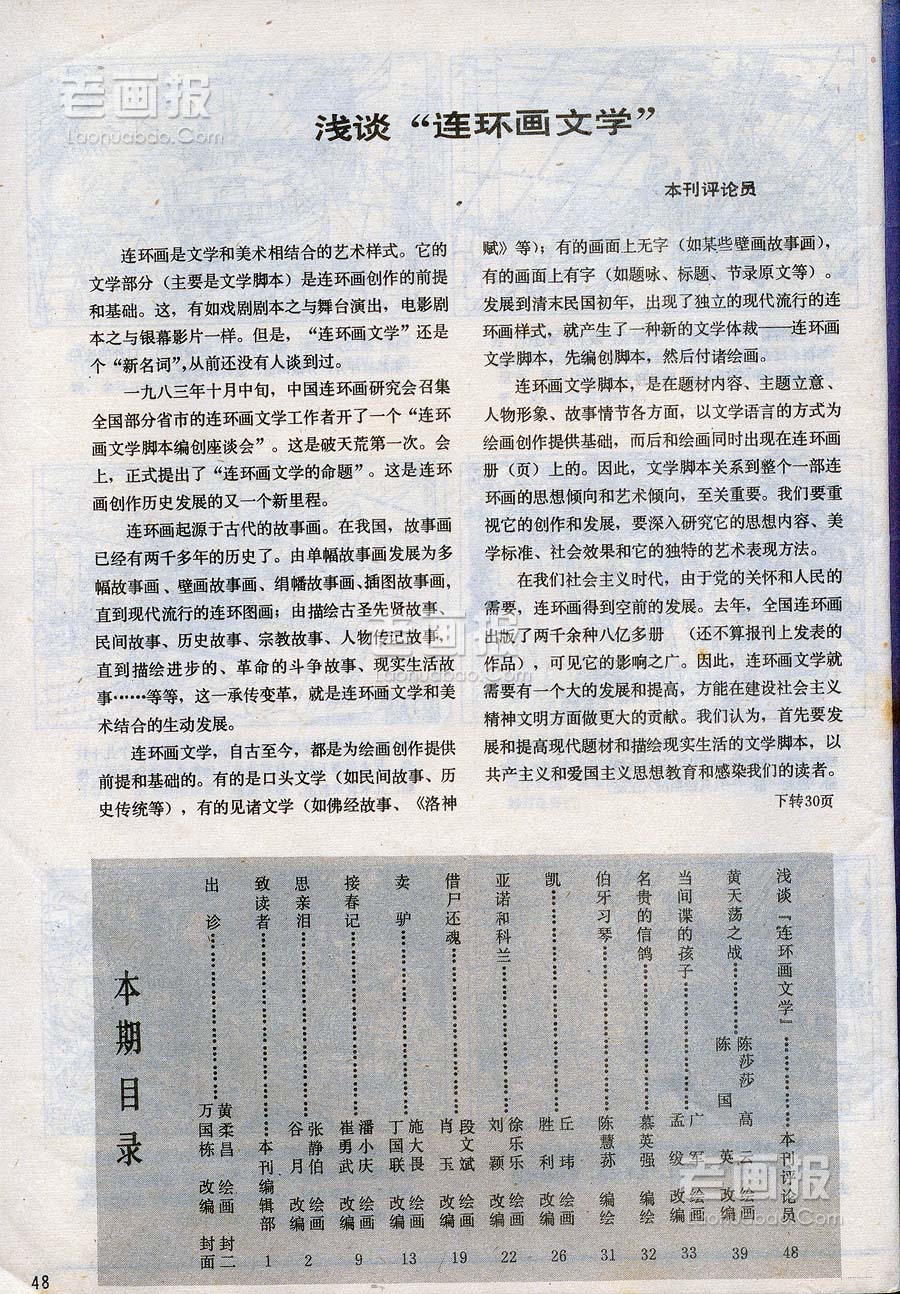 老画报
Laohuabao.Com
浅谈“连环画文学”
本刊评论员
连环画是文学和美术相结合的艺术样式。它的
文学部分（主要是文学脚本）是连环画创作的前提
和基础。这，有如戏剧剧本之与舞台演出，电影剧
本之与银幕影片一样。但是，“连环画文学”还是
个“新名词”，从前还没有人谈到过。
一九八三年十月中旬，中国连环画研究会召集
全国部分省市的连环画文学工作者开了一个“连环
画文学脚本编创座谈会”。这是破天荒第一次。会
上，正式提出了“连环画文学的命题”。这是连环
画创作历史发展的又一个新里程。
连环画起源于古代的故事画。在我国，故事画
已经有两千多年的历史了。由单幅故事画发展为多
幅故事画、壁画故事画、绢幡故事画、插图故事画，
直到现代流行的连环图画；由描绘古圣先贤故事、
民间故事、历史故事、宗教故事、人物传记故事，
直到描绘进步的、革命的斗争故事、现实生活故
事……等等，这一承传变革，就是连环画文学和美
术结合的生动发展。
连环画文学，自古至今，都是为绘画创作提供
前提和基础的。有的是口头文学（如民间故事、历
史传统等），有的见诸文学（如佛经故事、《洛神
赋》等）；有的画面上无字（如某些壁画故事画），
有的画面上有字（如题咏、标题、节录原文等）。
发展到清末民国初年，出现了独立的现代流行的连
环画样式，就产生了一种新的文学体裁——连环画
文学脚本，先编创脚本，然后付诸绘画。
连环画文学脚本，是在题材内容、主题立意、
人物形象、故事情节各方面，以文学语言的方式为
绘画创作提供基础，而后和绘画同时出现在连环画
册（页）上的。因此，文学脚本关系到整个一部连
环画的思想倾向和艺术倾向，至关重要。我们要重
视它的创作和发展，要深入研究它的思想内容、美
学标准、社会效果和它的独特的艺术表现方法。
在我们社会主义时代，由于党的关怀和人民的
需要，连环画得到空前的发展。去年，全国连环画
出版了两千余种八亿多册　（还不算报刊上发表的
作品），可见它的影响之广。因此，连环画文学就
需要有一个大的发展和提高，方能在建设社会主义
精神文明方面做更大的贡献。我们认为，首先要发
展和提高现代题材和描绘现实生活的文学脚本，以
共产主义和爱国主义思想教育和感染我们的读者。
下转30页
老画报
Laohuabao.Com
浅谈『连环画文学』…………本刊评论员 48
黄天荡之战…………陈莎莎 高云 绘画 陈国英 改编 39
当间谍的孩子…………广军 绘画 孟绂 改编 33
名贵的信鸽…………慕英强 编绘 32
伯牙习琴…………陈慧荪 编绘 31
凯…………丘玮 绘画 胜利 改编 26
亚诺和科兰…………徐乐乐 绘画 刘颖 改编 22
借尸还魂…………段文斌 绘画 肖玉 改编 19
卖驴…………施大畏 绘画 丁国联 改编 13
接春记…………潘小庆 绘画 崔勇武 改编 9
思亲泪…………张静伯 绘画 谷月 改编 2
致读者…………本刊编辑部 1
出诊…………黄柔昌 绘画 封二 万国栋 改编 封面
本期目录
老画报
Laohuabao.Com
48